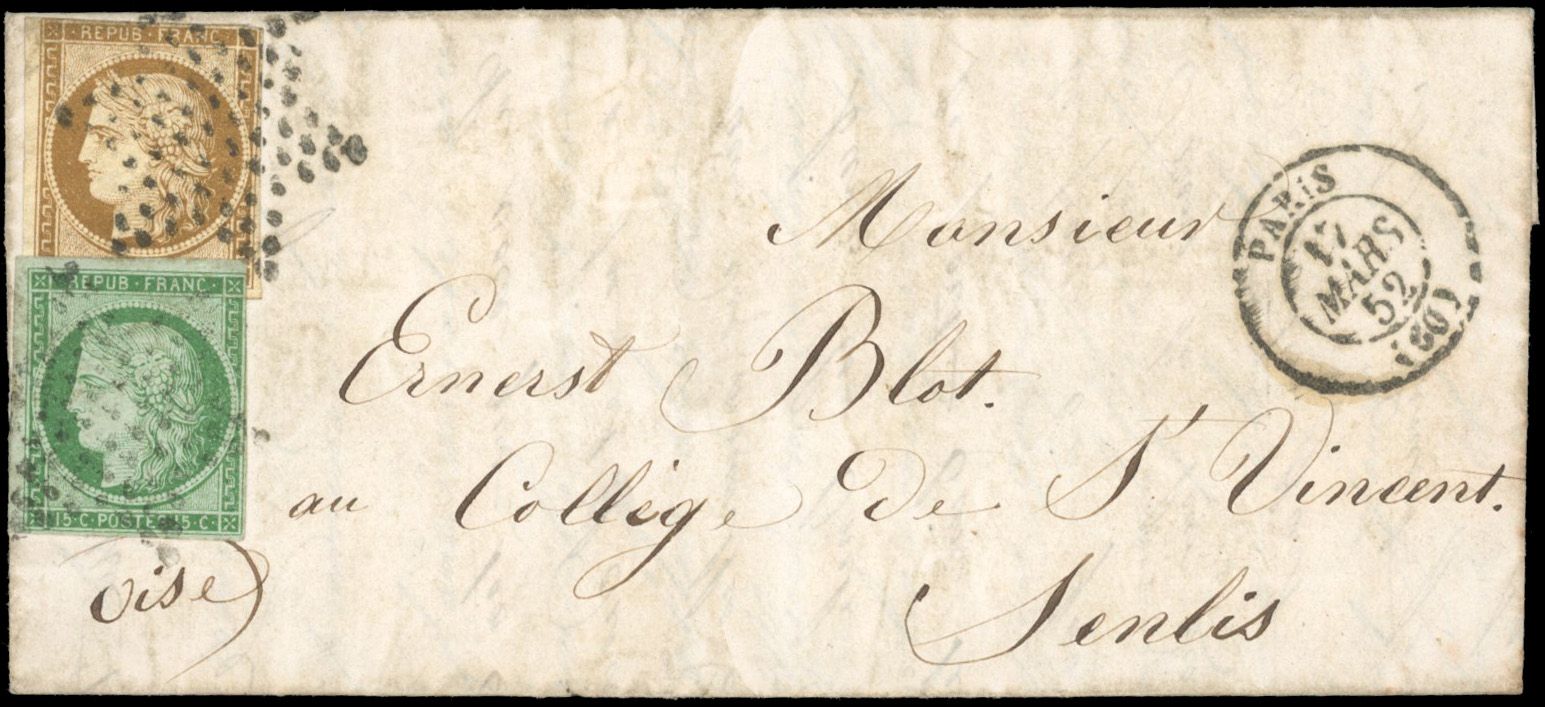 REPUB · FRANC
REPUB · FRANC
15 · C · POSTES 15 · C ·
PARIS
17
MARS
52
(60)
Monsieur
Ernerst Blot.
au Collége de St Vincent.
Senlis
oise)